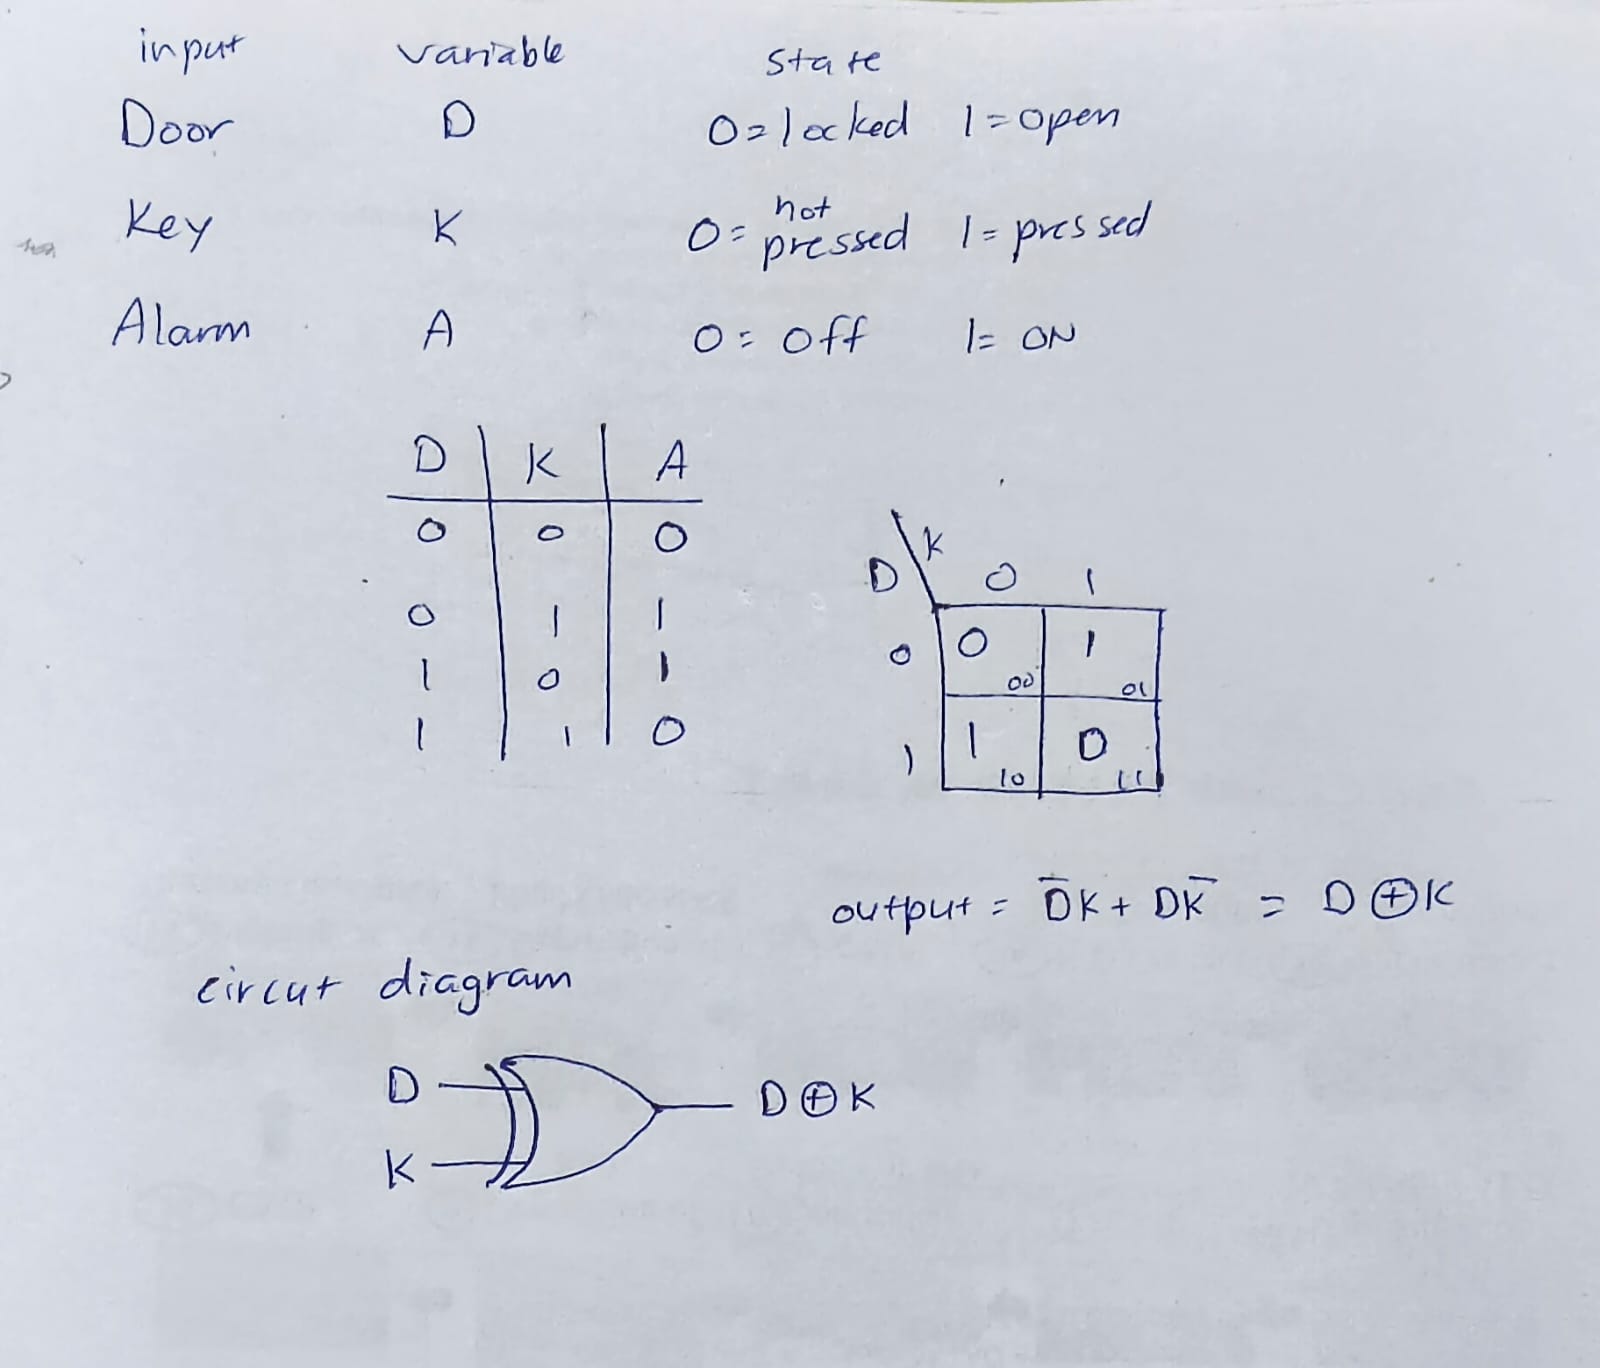 input variable state
Door D 0=locked 1=open
Key K 0= not pressed 1= pressed
Alarm A 0= off 1= ON
D K A
0 0 0
0 1 1
1 0 1
1 1 0
D K 0 1
0 0 00 1 01
1 1 10 0 11
output = D̅K + DK̅ = D⊕K
circut diagram
D
K
D⊕K